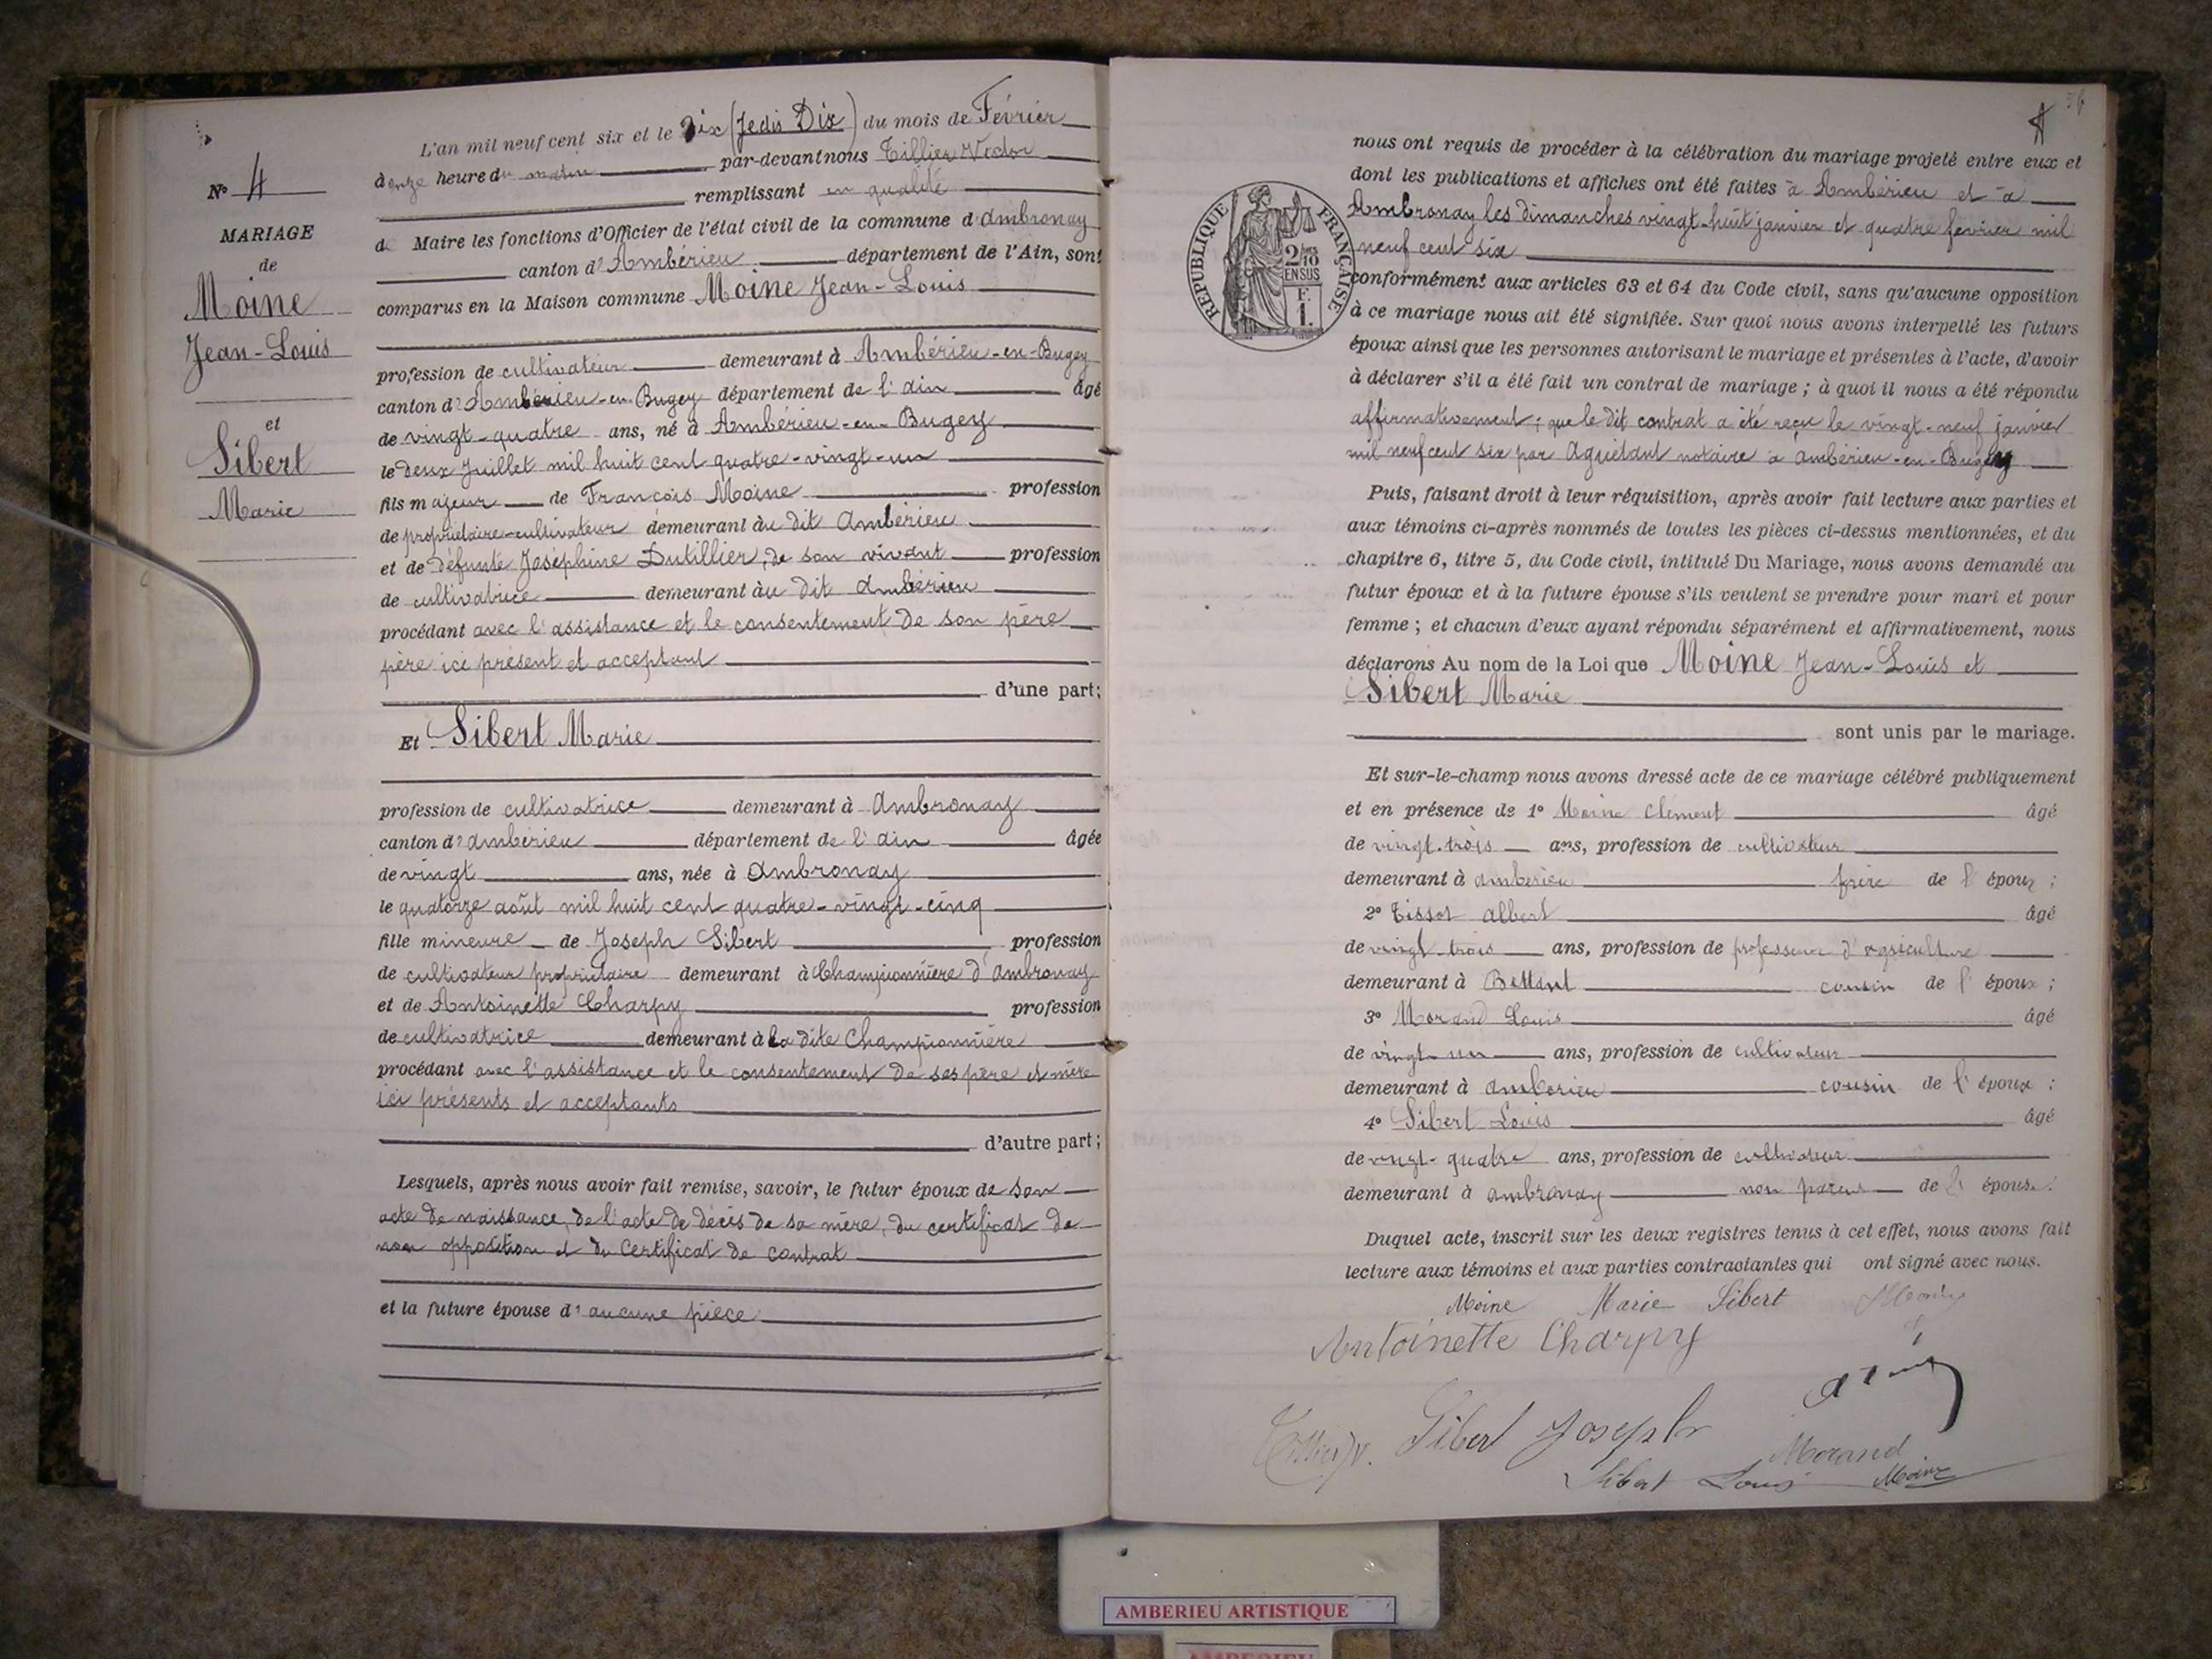 L'an mil neuf cent six et le Dix (Jedis Dix) du mois de Février
à onze heure du matin par-devant nous Tillier Victor
remplissant en qualité
de Maire les fonctions d'Officier de l'état civil de la commune d'Ambronay
canton d'Ambérieu département de l'Ain, sont
comparus en la Maison commune Moine Jean-Louis
profession de cultivateur demeurant à Ambérieu-en-Bugey
canton d'Ambérieu-en-Bugey département de l'ain âgé
de vingt-quatre ans, né à Ambérieu-en-Bugey
le deux Juillet mil huit cent quatre-vingt-un
fils majeur de François Moine profession
de propriétaire-cultivateur demeurant àu dit Ambérieu
et de défunte Joséphine Dutillier, de son vivant profession
de cultivatrice demeurant àu dit Ambérieu
procédant avec l'assistance et le consentement de son père
père ici présent et acceptant
d'une part;
Et Sibert Marie
profession de cultivatrice demeurant à Ambronay
canton d'ambérieu département de l'ain âgée
de vingt ans, née à Ambronay
le quatorze août mil huit cent quatre-vingt-cinq
fille mineure de Joseph Sibert profession
de cultivateur propriétaire demeurant à Championnière d'Ambronay
et de Antoinette Charpy profession
de cultivatrice demeurant à la dite Championnière
procédant avec l'assistance et le consentement de ses père et mère
ici présents et acceptants
d'autre part;
Lesquels, après nous avoir fait remise, savoir, le futur époux de son
acte de naissance, de l'acte de décès de sa mère, du certificat de
non opposition et du Certificat de contrat
et la future épouse d'aucune pièce
No 4
MARIAGE
de
Moine
Jean-Louis
et
Sibert
Marie
76
nous ont requis de procéder à la célébration du mariage projeté entre eux et
dont les publications et affiches ont été faites à Ambérieu et à
Ambronay les dimanches vingt-huit janvier et quatre février mil
neuf cent six
conformément aux articles 63 et 64 du Code civil, sans qu'aucune opposition
à ce mariage nous ait été signifiée. Sur quoi nous avons interpellé les futurs
époux ainsi que les personnes autorisant le mariage et présentes à l'acte, d'avoir
à déclarer s'il a été fait un contrat de mariage ; à quoi il nous a été répondu
affirmativement ; que le dit contrat a été reçu le vingt-neuf janvier
mil neuf cent six par Aguétant notaire à Ambérieu-en-Bugey
Puis, faisant droit à leur réquisition, après avoir fait lecture aux parties et
aux témoins ci-après nommés de toutes les pièces ci-dessus mentionnées, et du
chapitre 6, titre 5, du Code civil, intitulé Du Mariage, nous avons demandé au
futur époux et à la future épouse s'ils veulent se prendre pour mari et pour
femme ; et chacun d'eux ayant répondu séparément et affirmativement, nous
déclarons Au nom de la Loi que Moine Jean-Louis et
Sibert Marie
sont unis par le mariage.
Et sur-le-champ nous avons dressé acte de ce mariage célébré publiquement
et en présence de 1° Moine Clément âgé
de vingt-trois ans, profession de cultivateur
demeurant à ambérieu frère de l'époux ;
2° Tissot Albert âgé
de vingt-trois ans, profession de professeur d'agriculture
demeurant à Bettant cousin de l'époux ;
3° Morand Louis âgé
de vingt-un ans, profession de cultivateur
demeurant à ambérieu cousin de l'époux ;
4° Sibert Louis âgé
de vingt-quatre ans, profession de cultivateur
demeurant à ambronay non parent de l'épouse.
Duquel acte, inscrit sur les deux registres tenus à cet effet, nous avons fait
lecture aux témoins et aux parties contractantes qui ont signé avec nous.
Moine Marie Sibert
Antoinette Charpy
Tillier V. Sibert Joseph
Morand
Sibert Louis Moine
REPUBLIQUE FRANÇAISE
2/10
EN SUS
F.
1.
AMBERIEU ARTISTIQUE
AMBERIEU